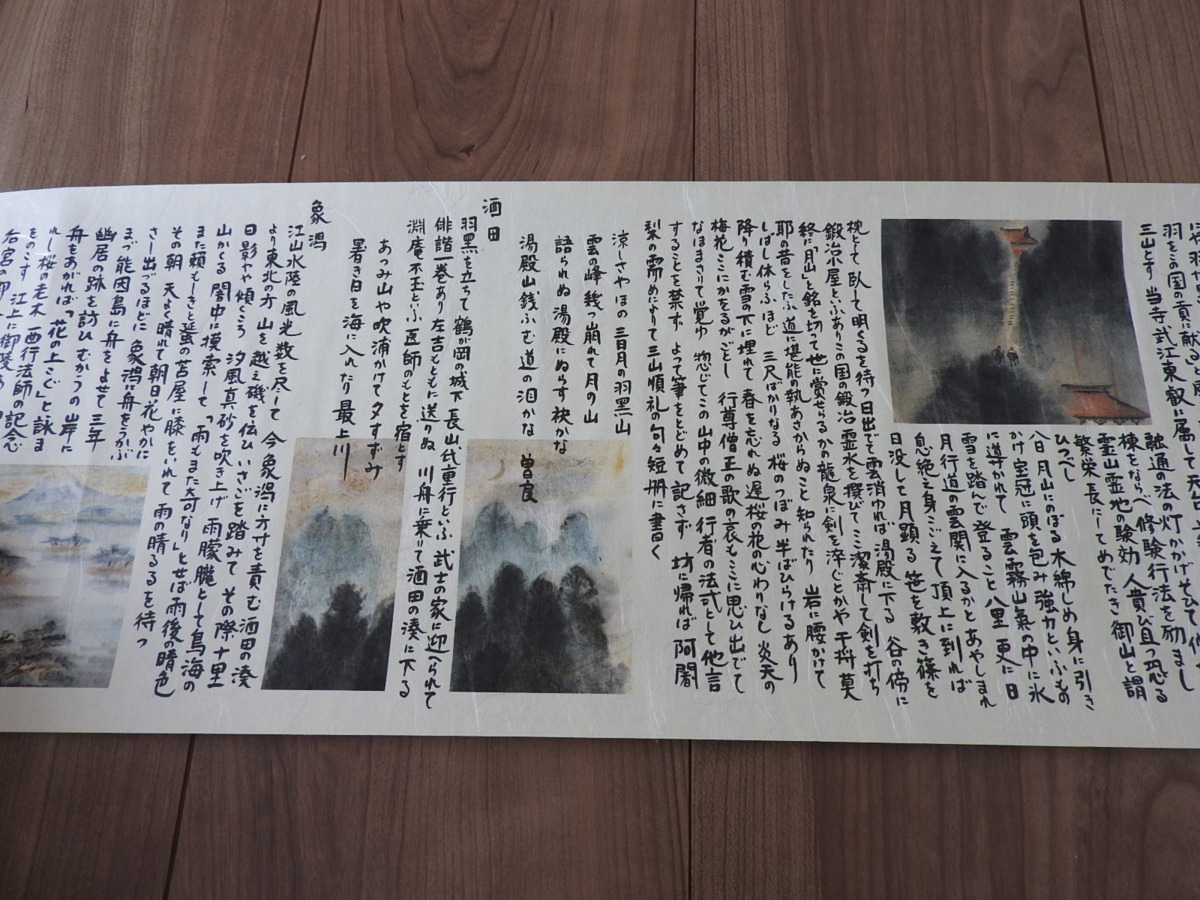 羽をこの国の貢に献ると風
三山とす 当寺武江東叡に属して天台
融通の法の灯かかげそひて 僧
棟をならべ 修験行法を励まし
霊山霊地の験効 人貴び且つ恐る
繁栄長にしてめでたき御山と謂
ひつべし
八日 月山にのぼる 木綿しめ身に引き
かけ宝冠に頭を包み 強力といふもの
に導かれて 雲霧山氣の中に氷
雪を踏んで登ること八里 更に日
月行道の雲関に入るかとあやしまれ
息絶え身こごえて頂上に到れば
日没して月顕る 笹を敷き篠を
枕として 臥して明くるを待つ 日出でて雲消ゆれば湯殿に下る 谷の傍に
鍛冶小屋といふあり この国の鍛冶 霊水を撰びてここに潔斎して剣を打ち
終に「月山」と銘を切って世に賞せらるるか 龍泉に剣を淬ぐとかや 干将莫
耶の昔をしたふ 道に堪能の執あさからぬこと知られたり 岩に腰かけて
しばし休らふほど 三尺ばかりなる桜のつぼみ半ばひらけるあり
降り積む雪の下に埋れて 春を忘れぬ遅桜の花の心わりなし 炎天の
梅花ここにかをるがごとし 行尊僧正の歌の哀もここに思ひ出でて
なほまさりて覚ゆ 惣じてこの山中の微細 行者の法式として他言
することを禁ず よって筆をとどめて記さず 坊に帰れば 阿闍
梨の需めによりて三山順礼の句々短冊に書く
涼しさやほの三日月の羽黒山
雲の峰幾つ崩れて月の山
語られぬ湯殿にぬらす袂かな
湯殿山銭ふむ道の泪かな 曽良
酒田
羽黒を立ちて 鶴が岡の城下 長山氏重行といふ 武士の家に迎へられて
俳諧一巻あり 左吉もともに送りぬ 川舟に乗りて酒田の湊に下る
淵庵不玉といふ 医師のもとを宿とす
あつみ山や吹浦かけて夕すずみ
暑き日を海に入れたり最上川
象潟
江山水陸の風光数を尽して 今象潟に方寸を責む 酒田の湊
より東北の方 山を越え磯を伝ひ いさごを踏みて その際十里
日影やや傾くころ 汐風真砂を吹き上げ 雨朦朧として鳥海の
山かくる 闇中に摸索して「雨もまた奇なり」とせば 雨後の晴色
また頼もしきと 蜑の苫屋に膝をいれて 雨の晴るるを待つ
その朝 天よく晴れて 朝日花やかに
さし出づるほどに 象潟に舟をうかぶ
まづ能因島に舟をよせて 三年
幽居の跡を訪ひ むかうの岸に
舟をあがれば「花の上こぐ」と詠ま
れし桜の老木 西行法師の記念
をのこす 江上に御陵あり